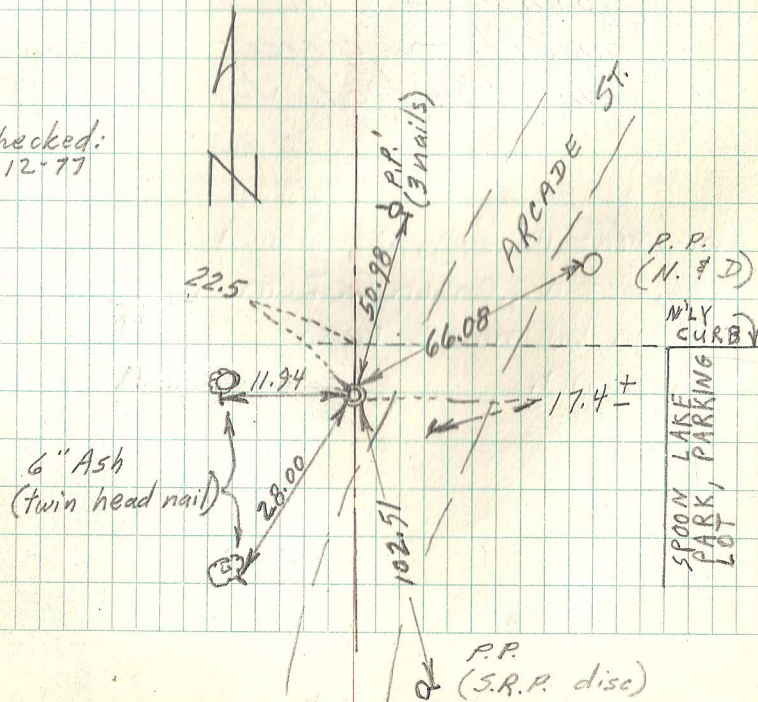 hecked:
12-77
N
P.P.
(3 nails)
ARCADE ST.
P.P.
(N. & D)
N'LY
CURB
22.5
50.98
66.08
11.94
17.4 ±
6" Ash
(twin head nail)
28.00
102.51
SPOON LAKE
PARK, PARKING
LOT
P.P.
(S.R.P. disc)